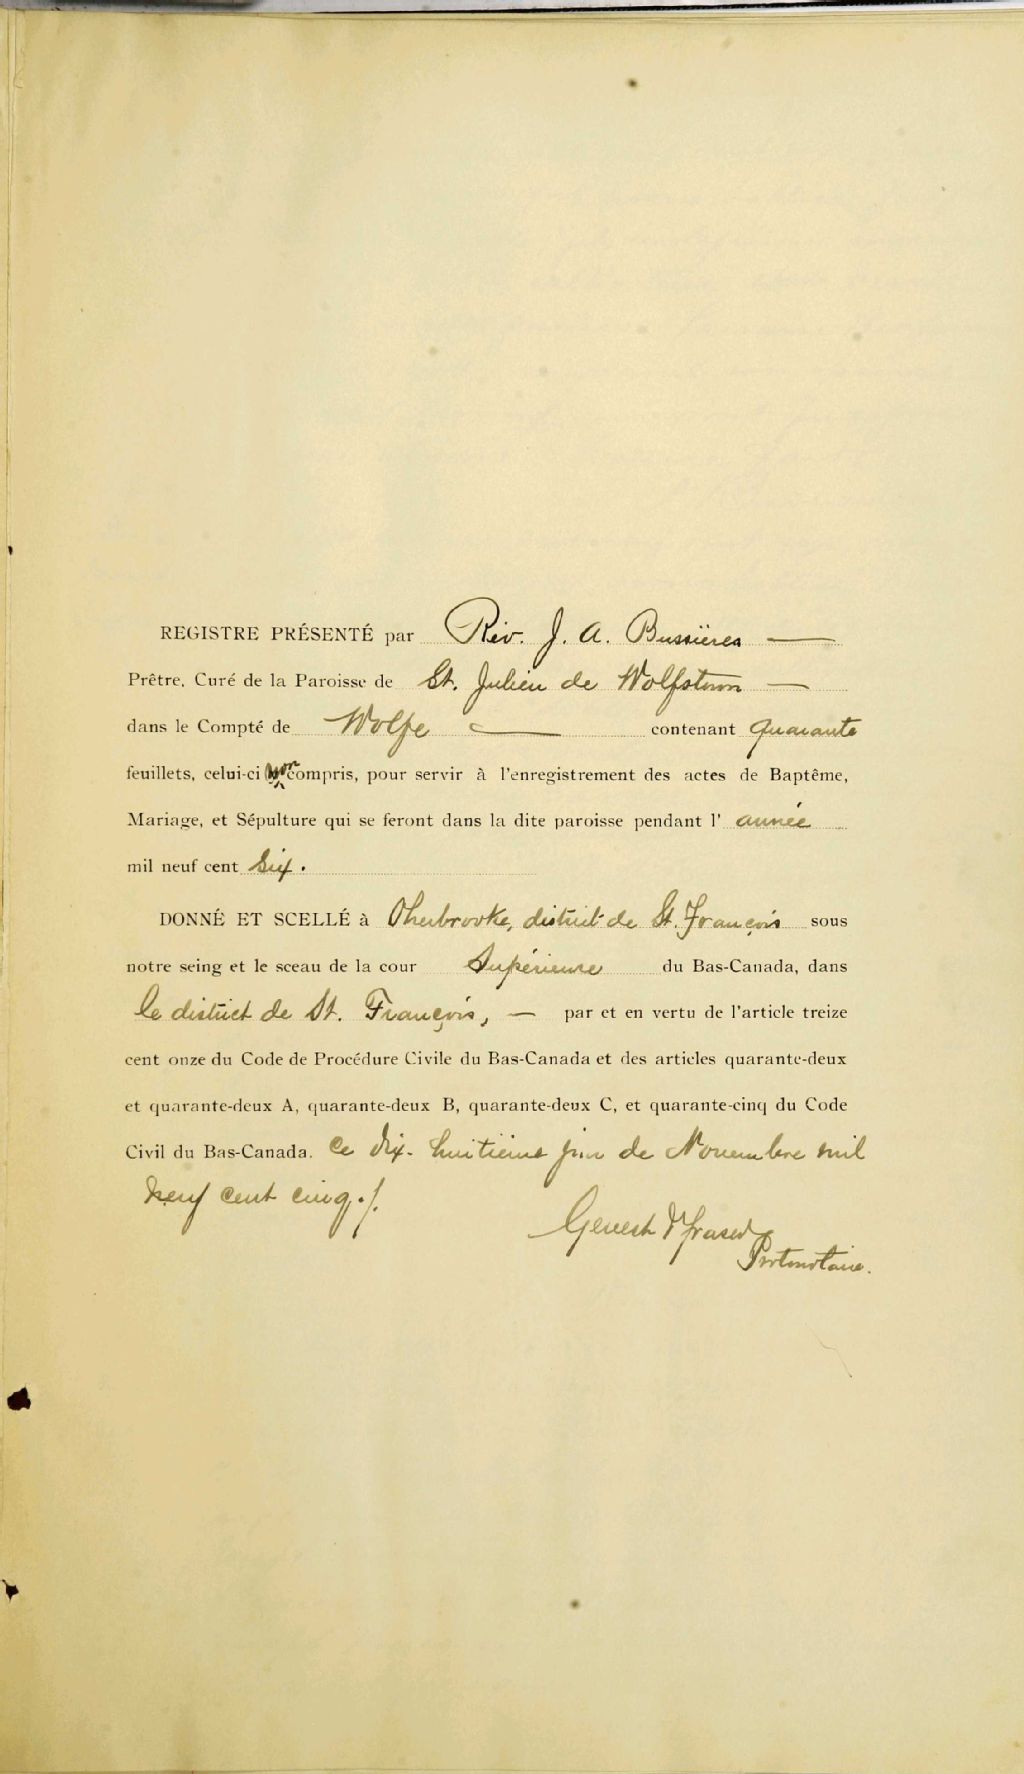 REGISTRE PRÉSENTÉ par Rév. J. A. Bussières —
Prêtre, Curé de la Paroisse de St. Julien de Wolfstown —
dans le Compté de Wolfe — contenant quarante
feuillets, celui-ci non compris, pour servir à l'enregistrement des actes de Baptême,
Mariage, et Sépulture qui se feront dans la dite paroisse pendant l' année
mil neuf cent six.
DONNÉ ET SCELLÉ à Sherbrooke, district de St. François sous
notre seing et le sceau de la cour Supérieure du Bas-Canada, dans
le district de St. François, — par et en vertu de l'article treize
cent onze du Code de Procédure Civile du Bas-Canada et des articles quarante-deux
et quarante-deux A, quarante-deux B, quarante-deux C, et quarante-cinq du Code
Civil du Bas-Canada. ce dix-huitième jour de Novembre mil
neuf cent cinq./.
Genest & Fraser
Protonotaire.